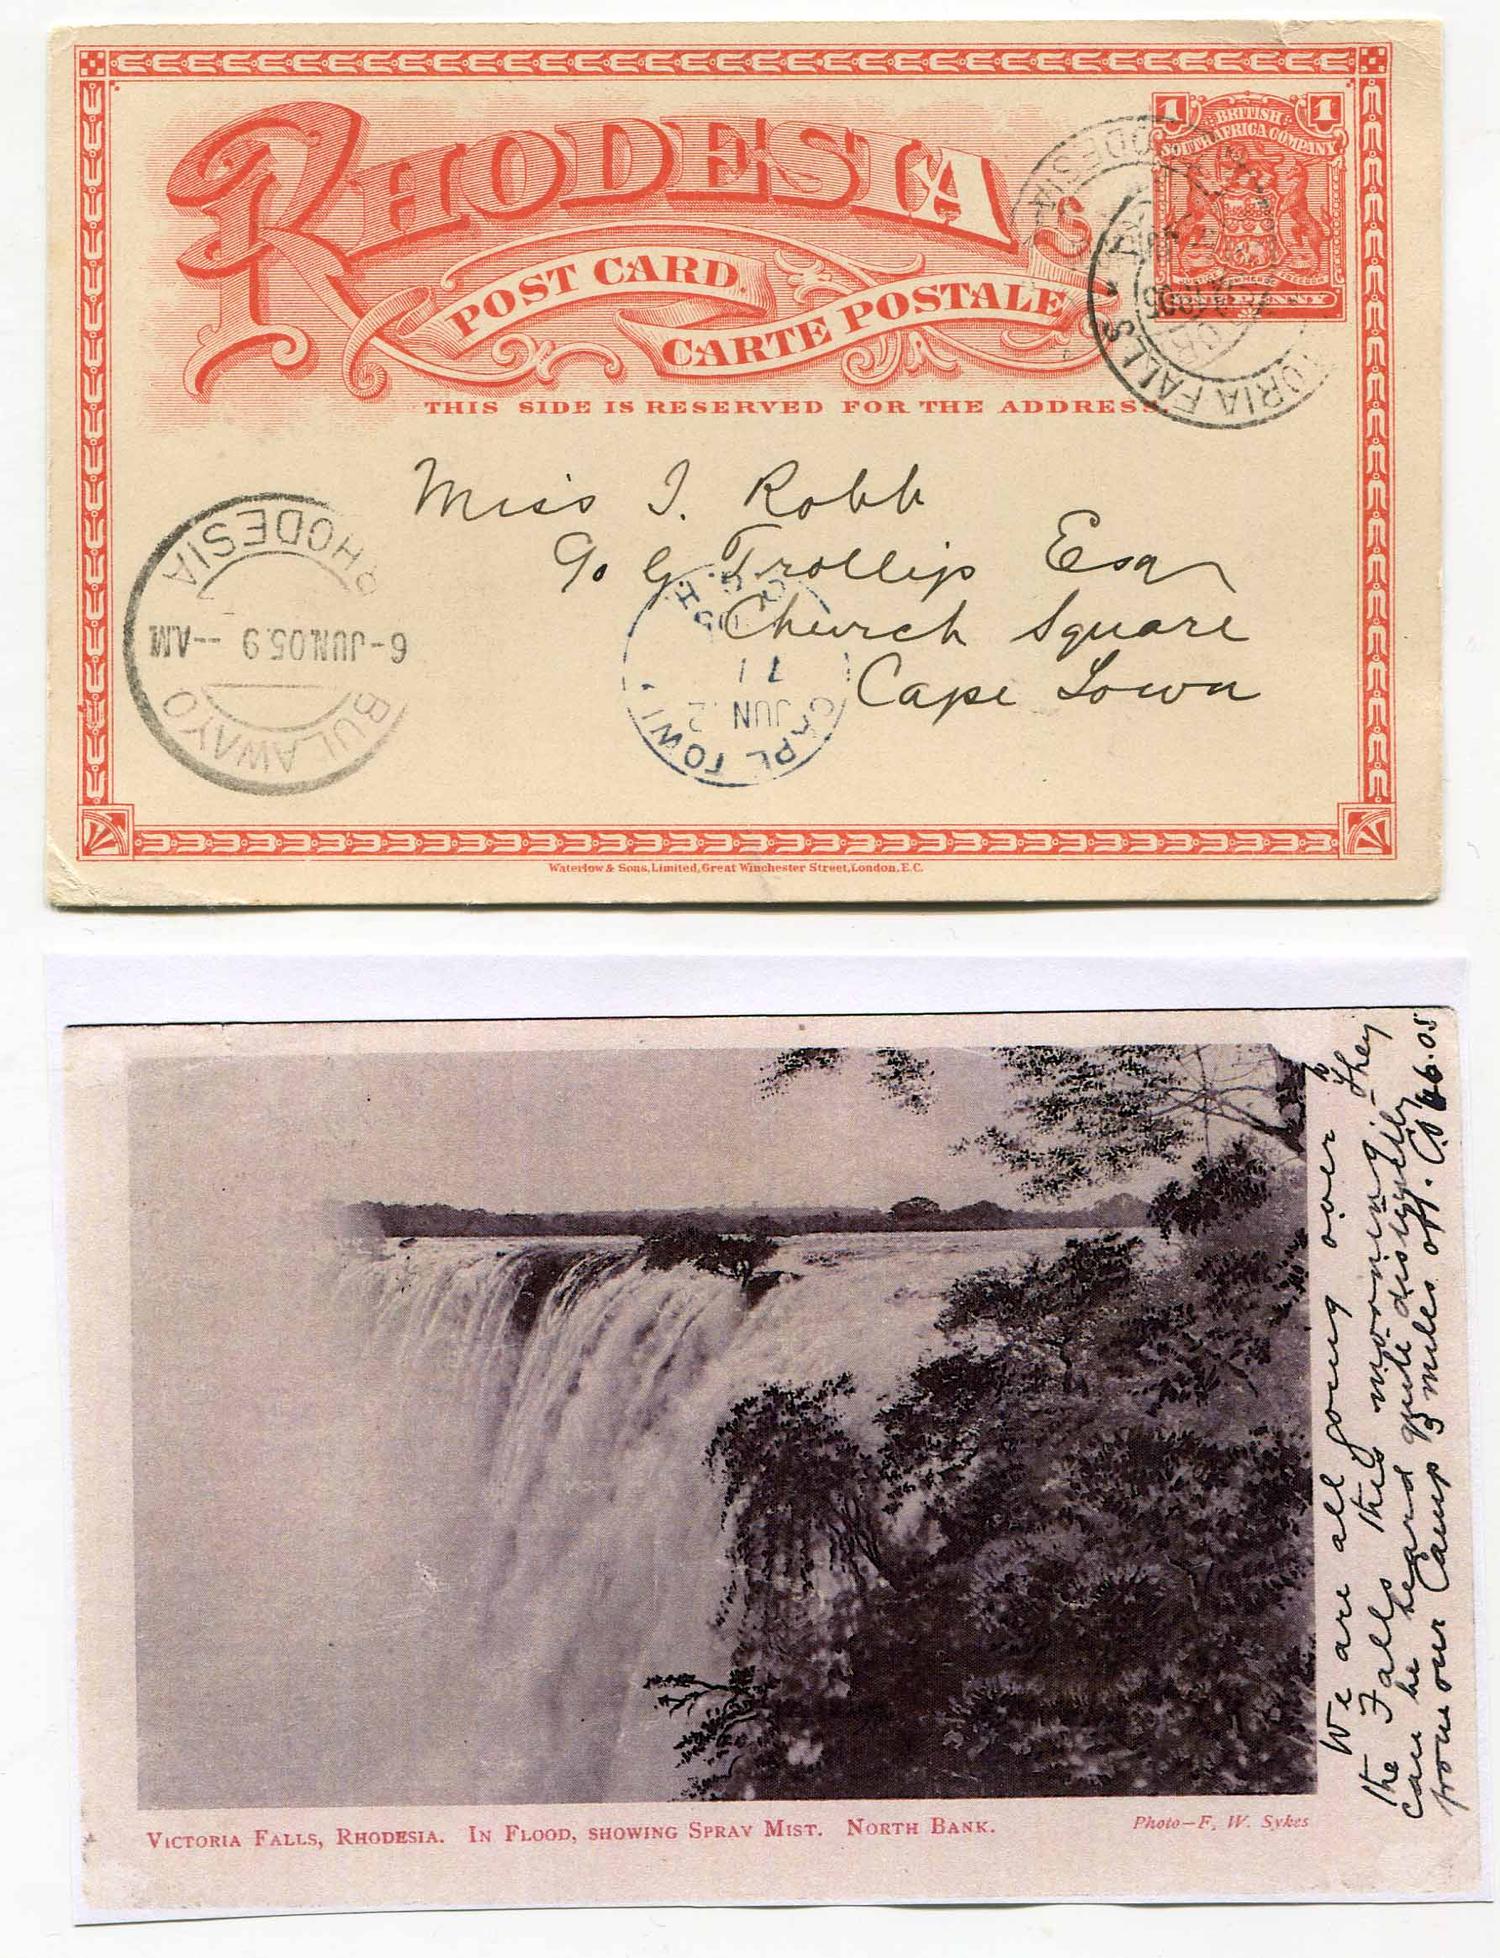 RHODESIA
POST CARD.
CARTE POSTALE
THIS SIDE IS RESERVED FOR THE ADDRESS.
1 BRITISH 1
SOUTH AFRICA COMPANY
PENNY
RHODESIA
VICTORIA FALLS
Miss I. Robb
c/o G Trollip Esq
Church Square
Cape Town
RHODESIA
6-JUN.05.9--AM
BULAWAYO
CAPE TOWN
JUN 12
11
Waterlow & Sons, Limited, Great Winchester Street, London, E.C.
We are all going over to
the Falls this morning. They
can be heard quite distinctly
from our Camp 3 miles off.
VICTORIA FALLS, RHODESIA. IN FLOOD, SHOWING SPRAY MIST. NORTH BANK.
Photo—F. W. Sykes